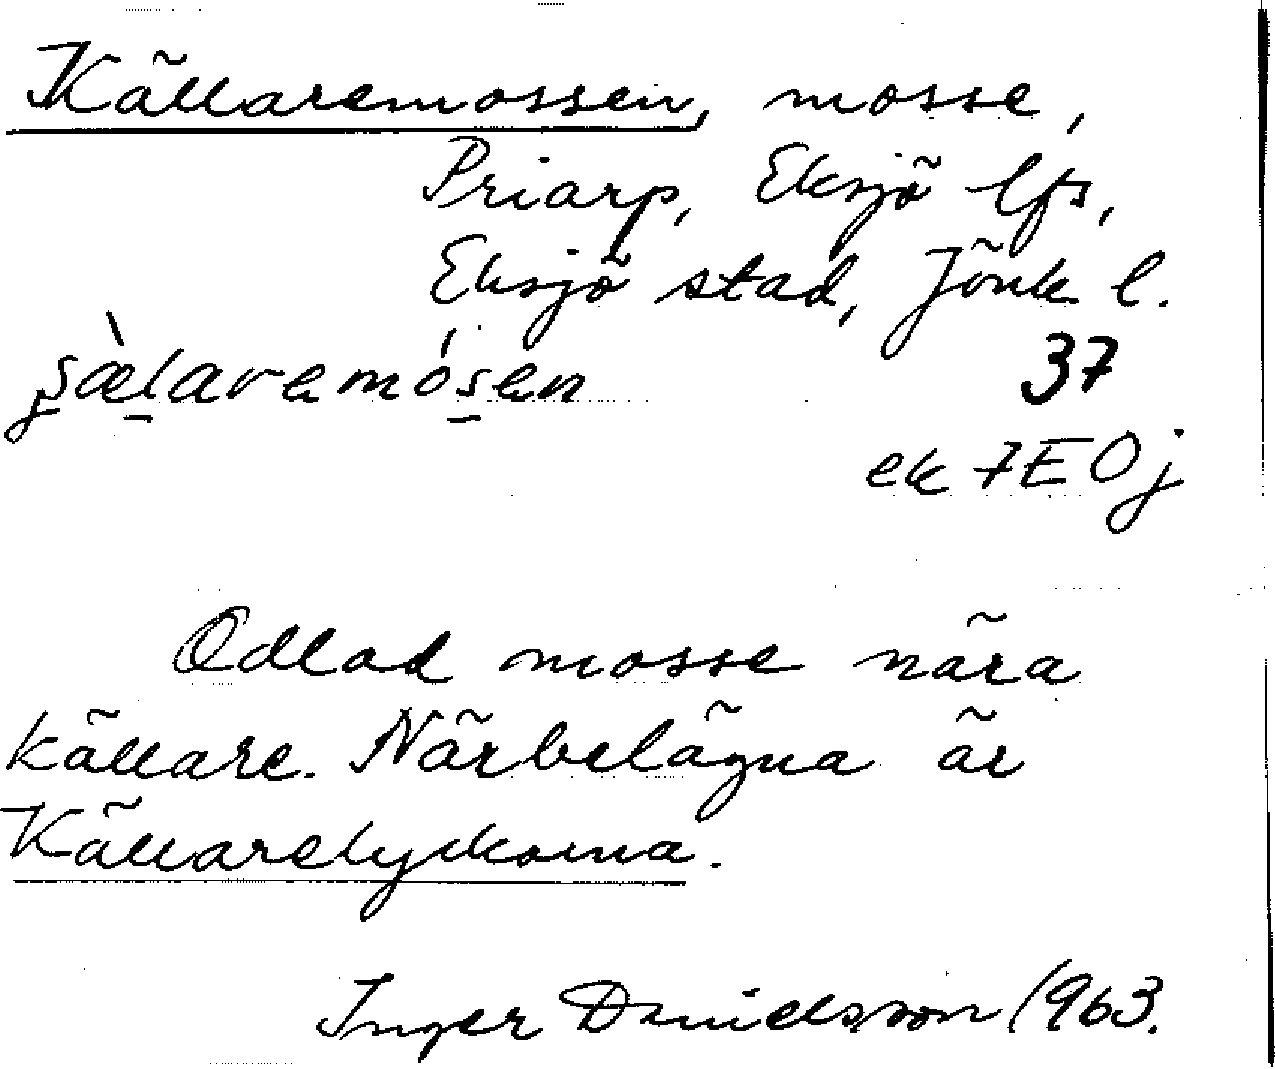 Källaremossen, mosse,
Priarp, Eksjö lfs,
Eksjö stad, Jönk l.
37
ek 7E0j
Odlad mosse nära
källare. Närbelägna är
Källarelyckorna.
Inger Danielsson 1963.